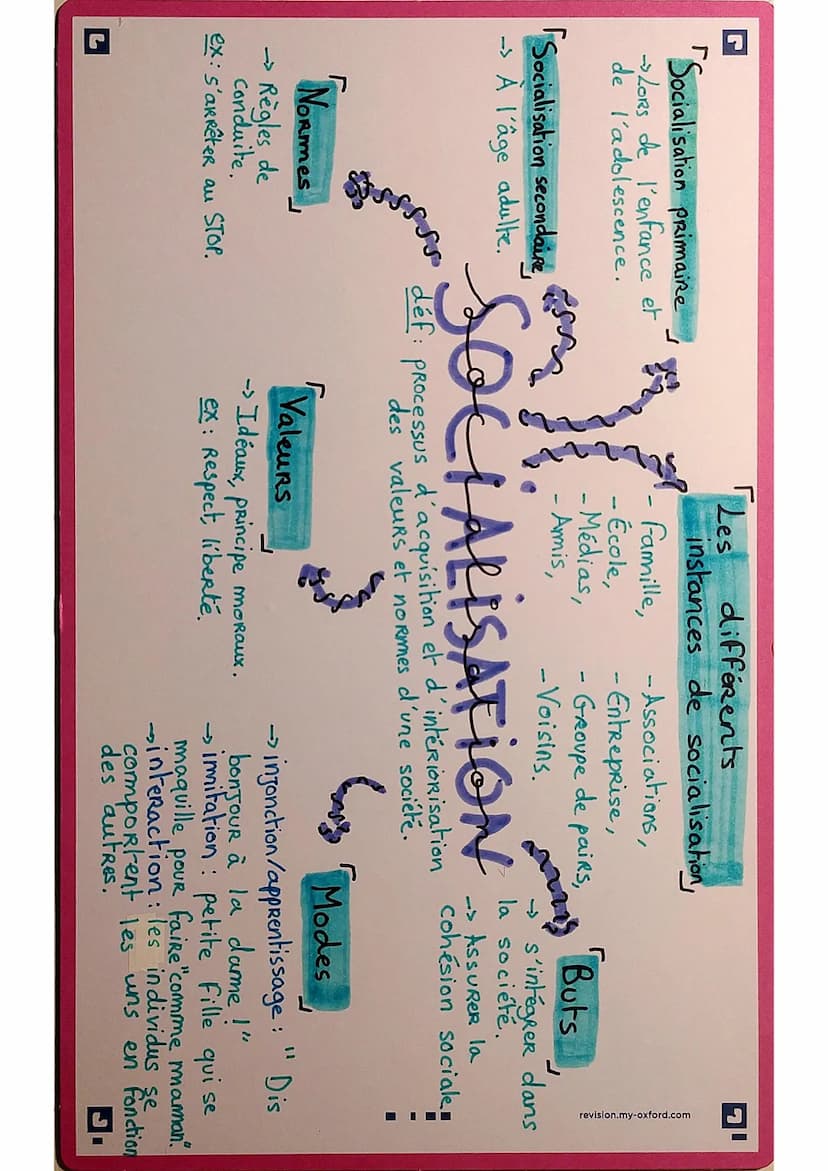 Socialisation primaire
→ Lors de l'enfance et
de l'adolescence.
Socialisation secondaire
→ À l'âge adulte.
Les différents
instances de socialisation
- Famille,
- École,
- Médias,
- Amis,
- Associations,
- Entreprise,
- Groupe de pairs,
- Voisins.
Buts
→ s'intégrer dans
la société.
→ Assurer la
cohésion sociale.
SOCIALISATION
Socialisation
déf : processus d'acquisition et d'intériorisation
des valeurs et normes d'une société.
Normes
→ Règles de
conduite.
ex : s'arrêter au STOP.
Valeurs
→ Idéaux, principe moraux.
ex : Respect, liberté.
Modes
→ injonction/apprentissage : " Dis
bonjour à la dame !"
→ imitation : petite fille qui se
maquille pour faire "comme maman."
→ interaction : les individus se
comportent les uns en fonction
des autres.
revision.my-oxford.com